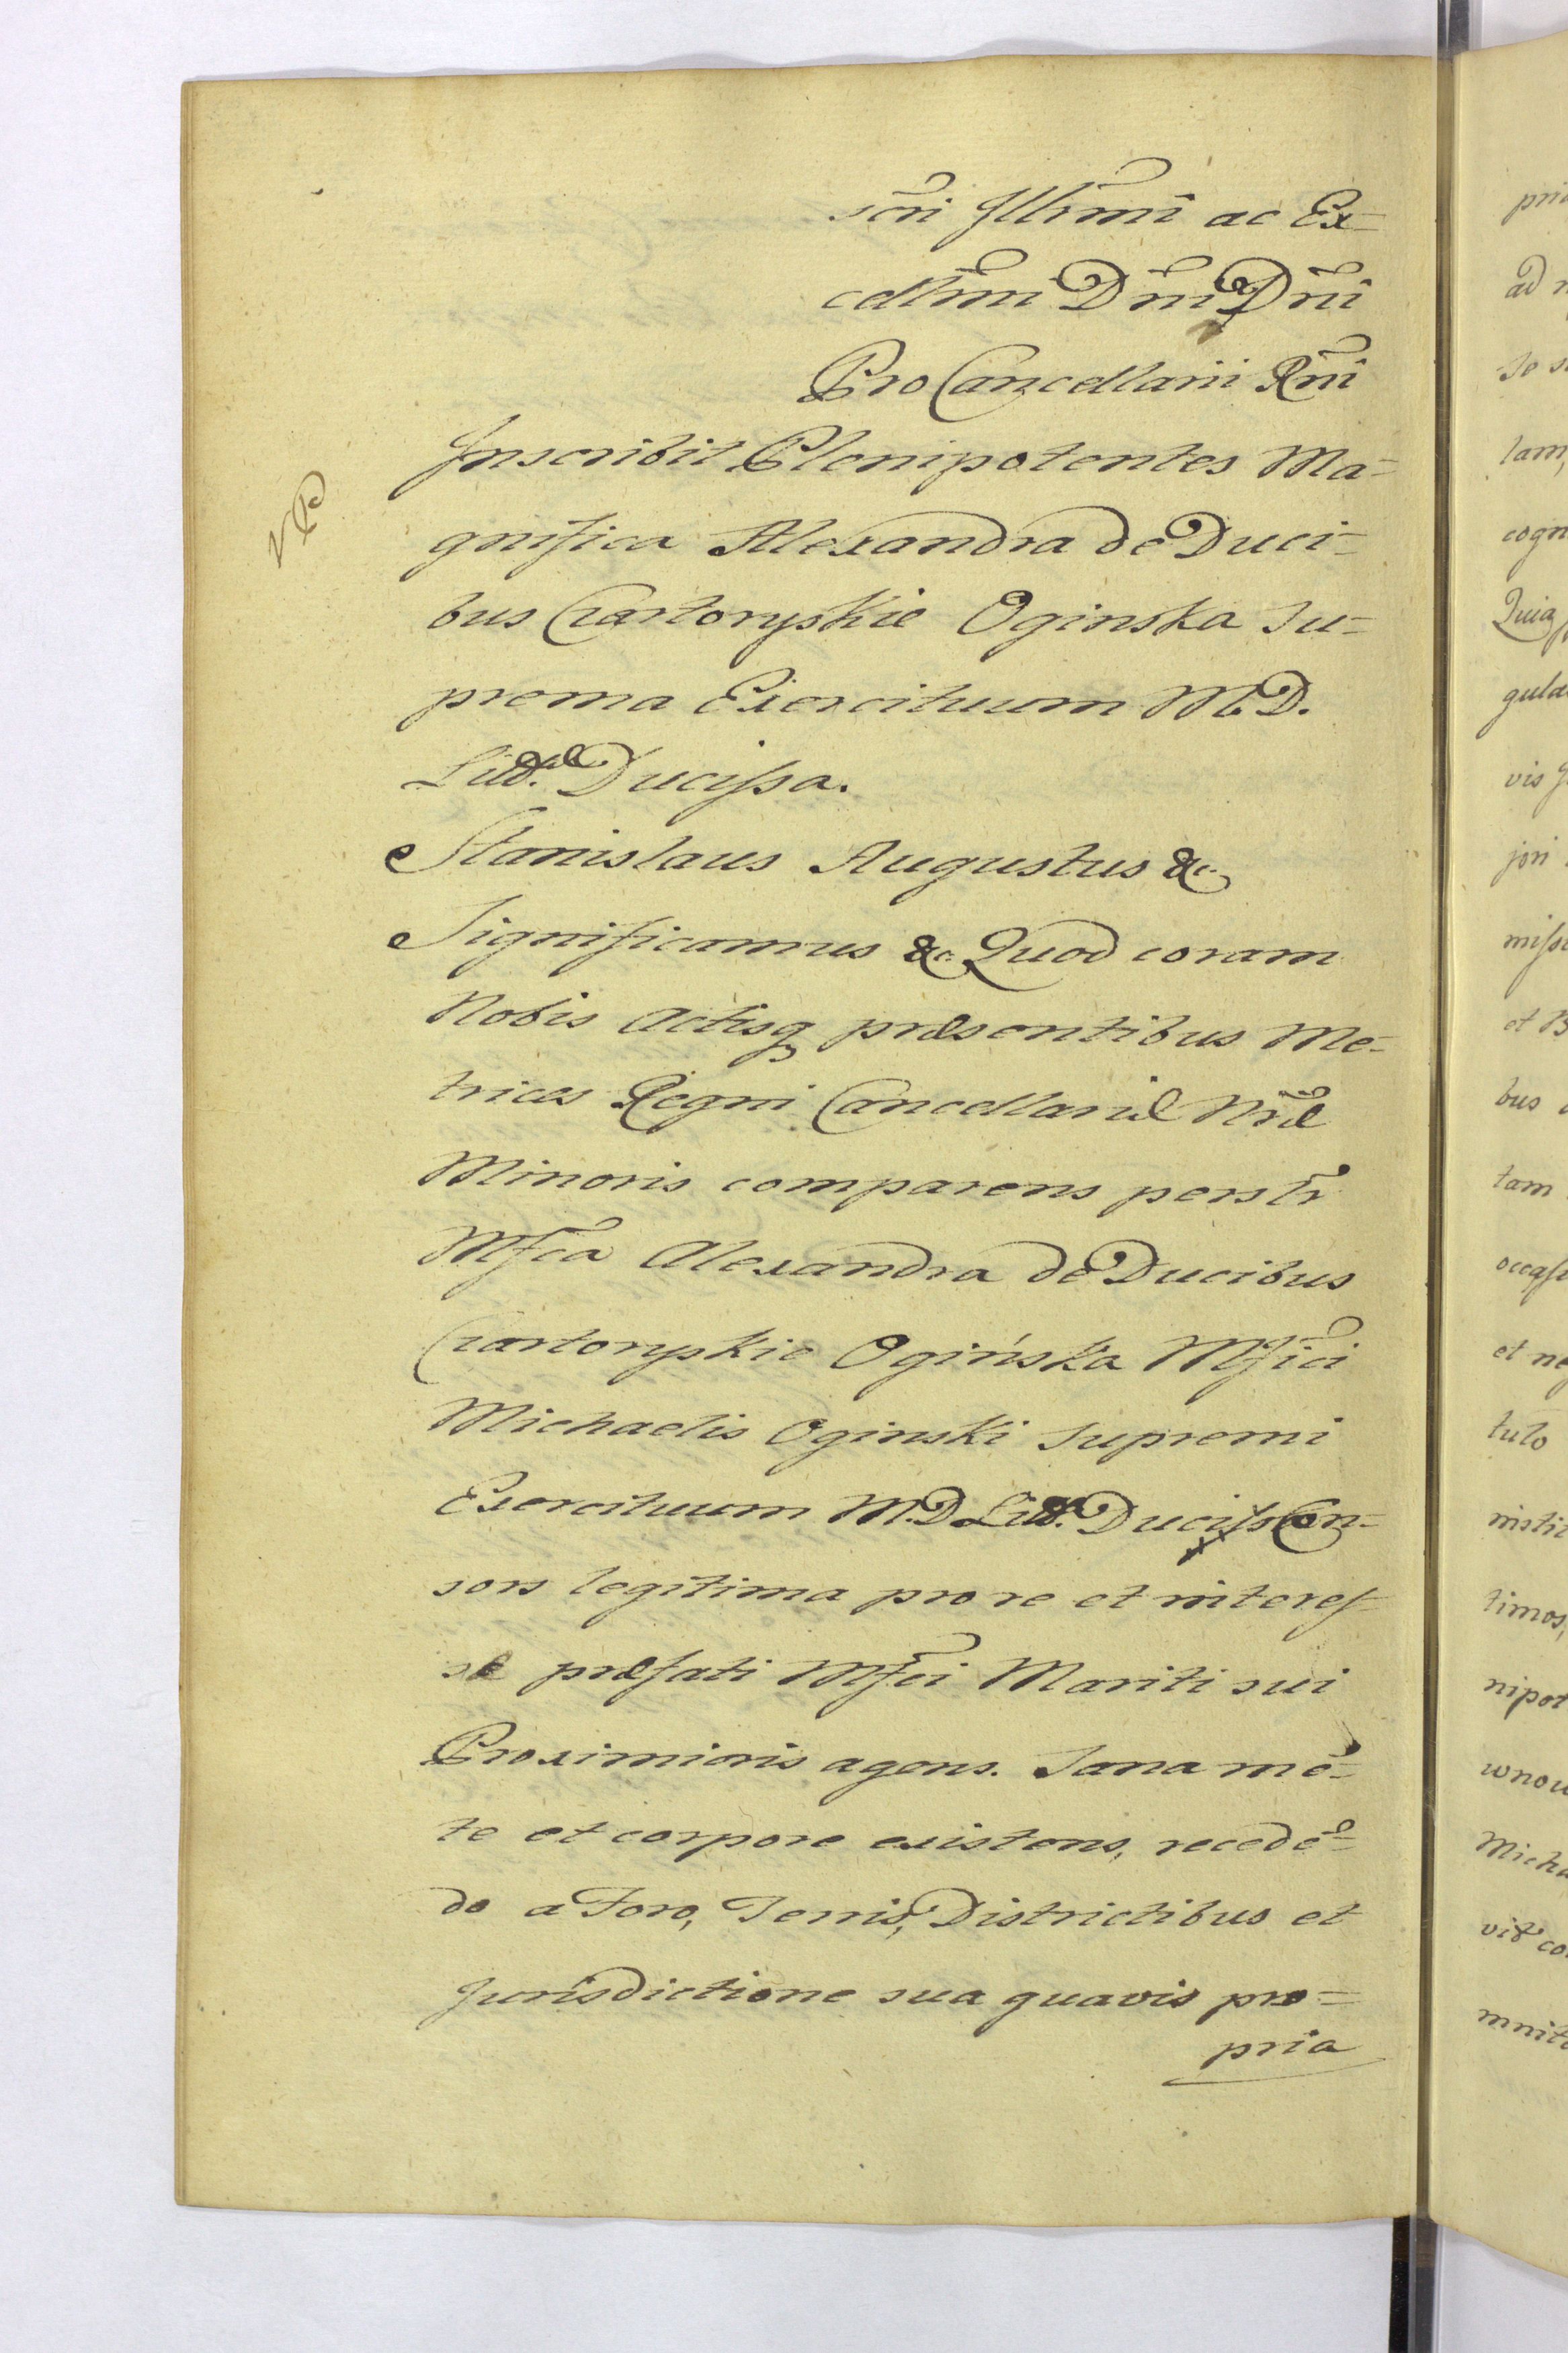 scri Illrmi ac Ex-
cellrmi Dni Dni
ProCancellarii Rni
Inscribit Plenipotentes Ma-
gnifica Alexandra de Duci-
bus Czartoryskie Oginska Su-
prema Exercituum M.D.
Litt. Ducissa.
Stanislaus Augustus &c.
Significamus &c. Quod coram
Nobis Actisq præsentibus Me-
trices Regni Cancellariæ Nræ
Minoris comparens perslr
Mfca Alexandra de Ducibus
Czartoryskie Ogińska Mfici
Michaelis Oginski Supremi
Exercituum M.D. Litt. Ducis Con-
sors legitima pro re et interes-
se præfati Mfci Mariti sui
Proximioris agens. Sana mē-
te et corpore existens, recedē-
do a Foro, Terris, Districtibus et
Jurisdictione sua quavis pro-
pria
prio
ad
se
tam,
cogn
Quia
gula
vis
jori
misso
et
bus
tam
occas
et neg
tulo
instit
timos,
nipot
wnow
Micha
vit co
mnito